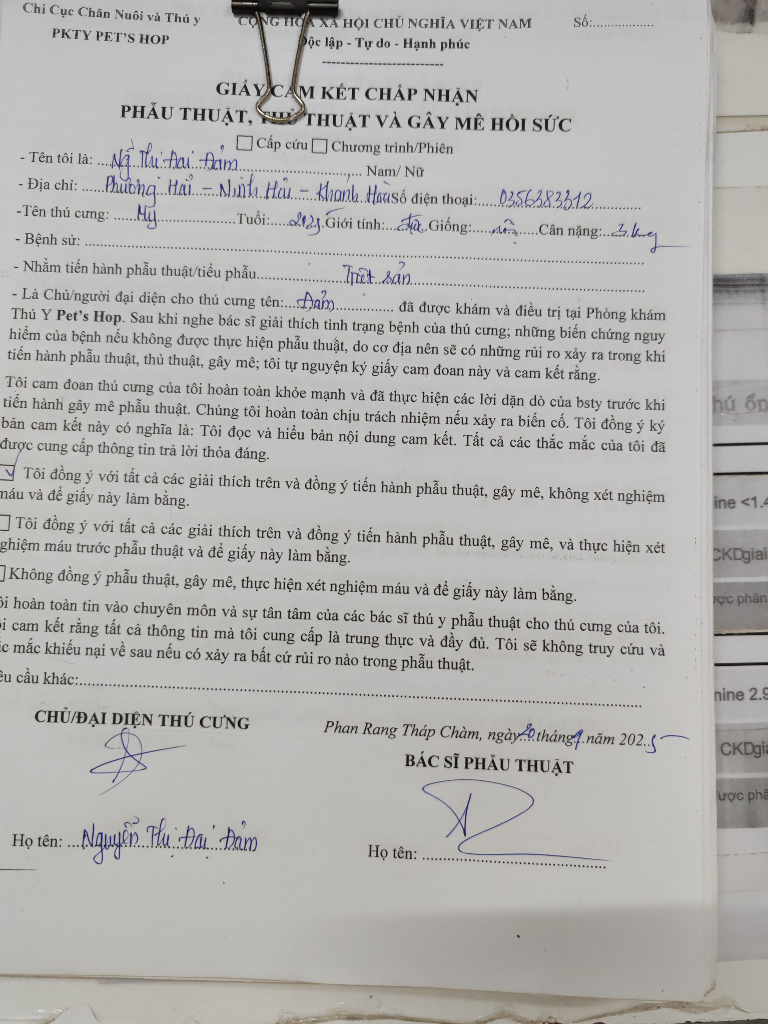 Chi Cục Chăn Nuôi và Thú y
PKTY PET'S HOP
CỘNG HÒA XÃ HỘI CHỦ NGHĨA VIỆT NAM
Độc lập - Tự do - Hạnh phúc
Số:
GIẤY CAM KẾT CHẤP NHẬN
PHẪU THUẬT, THỦ THUẬT VÀ GÂY MÊ HỒI SỨC
Cấp cứu Chương trình/Phiên
- Tên tôi là: Ng Thị Đại Đảm Nam/ Nữ
- Địa chỉ: Phương Hải - Ninh Hải - Khánh Hòa Số điện thoại: 0356383312
-Tên thú cưng: My Tuổi: Giới tính: Giống: Cân nặng: 3 kg
- Bệnh sử:
- Nhằm tiến hành phẫu thuật/tiểu phẫu Triệt sản
- Là Chủ/người đại diện cho thú cưng tên: Đảm đã được khám và điều trị tại Phòng khám
Thú Y Pet's Hop. Sau khi nghe bác sĩ giải thích tình trạng bệnh của thú cưng; những biến chứng nguy
hiểm của bệnh nếu không được thực hiện phẫu thuật, do cơ địa nên sẽ có những rủi ro xảy ra trong khi
tiến hành phẫu thuật, thủ thuật, gây mê; tôi tự nguyện ký giấy cam đoan này và cam kết rằng.
Tôi cam đoan thú cưng của tôi hoàn toàn khỏe mạnh và đã thực hiện các lời dặn dò của bsty trước khi
tiến hành gây mê phẫu thuật. Chúng tôi hoàn toàn chịu trách nhiệm nếu xảy ra biến cố. Tôi đồng ý ký
bản cam kết này có nghĩa là: Tôi đọc và hiểu bản nội dung cam kết. Tất cả các thắc mắc của tôi đã
được cung cấp thông tin trả lời thỏa đáng.
Tôi đồng ý với tất cả các giải thích trên và đồng ý tiến hành phẫu thuật, gây mê, không xét nghiệm
máu và để giấy này làm bằng.
Tôi đồng ý với tất cả các giải thích trên và đồng ý tiến hành phẫu thuật, gây mê, và thực hiện xét
nghiệm máu trước phẫu thuật và để giấy này làm bằng.
Không đồng ý phẫu thuật, gây mê, thực hiện xét nghiệm máu và để giấy này làm bằng.
ôi hoàn toàn tin vào chuyên môn và sự tân tâm của các bác sĩ thú y phẫu thuật cho thú cưng của tôi.
i cam kết rằng tất cả thông tin mà tôi cung cấp là trung thực và đầy đủ. Tôi sẽ không truy cứu và
ắc mắc khiếu nại về sau nếu có xảy ra bất cứ rủi ro nào trong phẫu thuật.
êu cầu khác:
CHỦ/ĐẠI DIỆN THÚ CƯNG
Phan Rang Tháp Chàm, ngày 20 tháng 9 năm 2025
BÁC SĨ PHẪU THUẬT
Họ tên: Nguyễn Thị Đại Đảm
Họ tên:
hú ổn
ine <1.4
CKDgiai
ược phân
nine 2.9
CKDgia
ược phâ